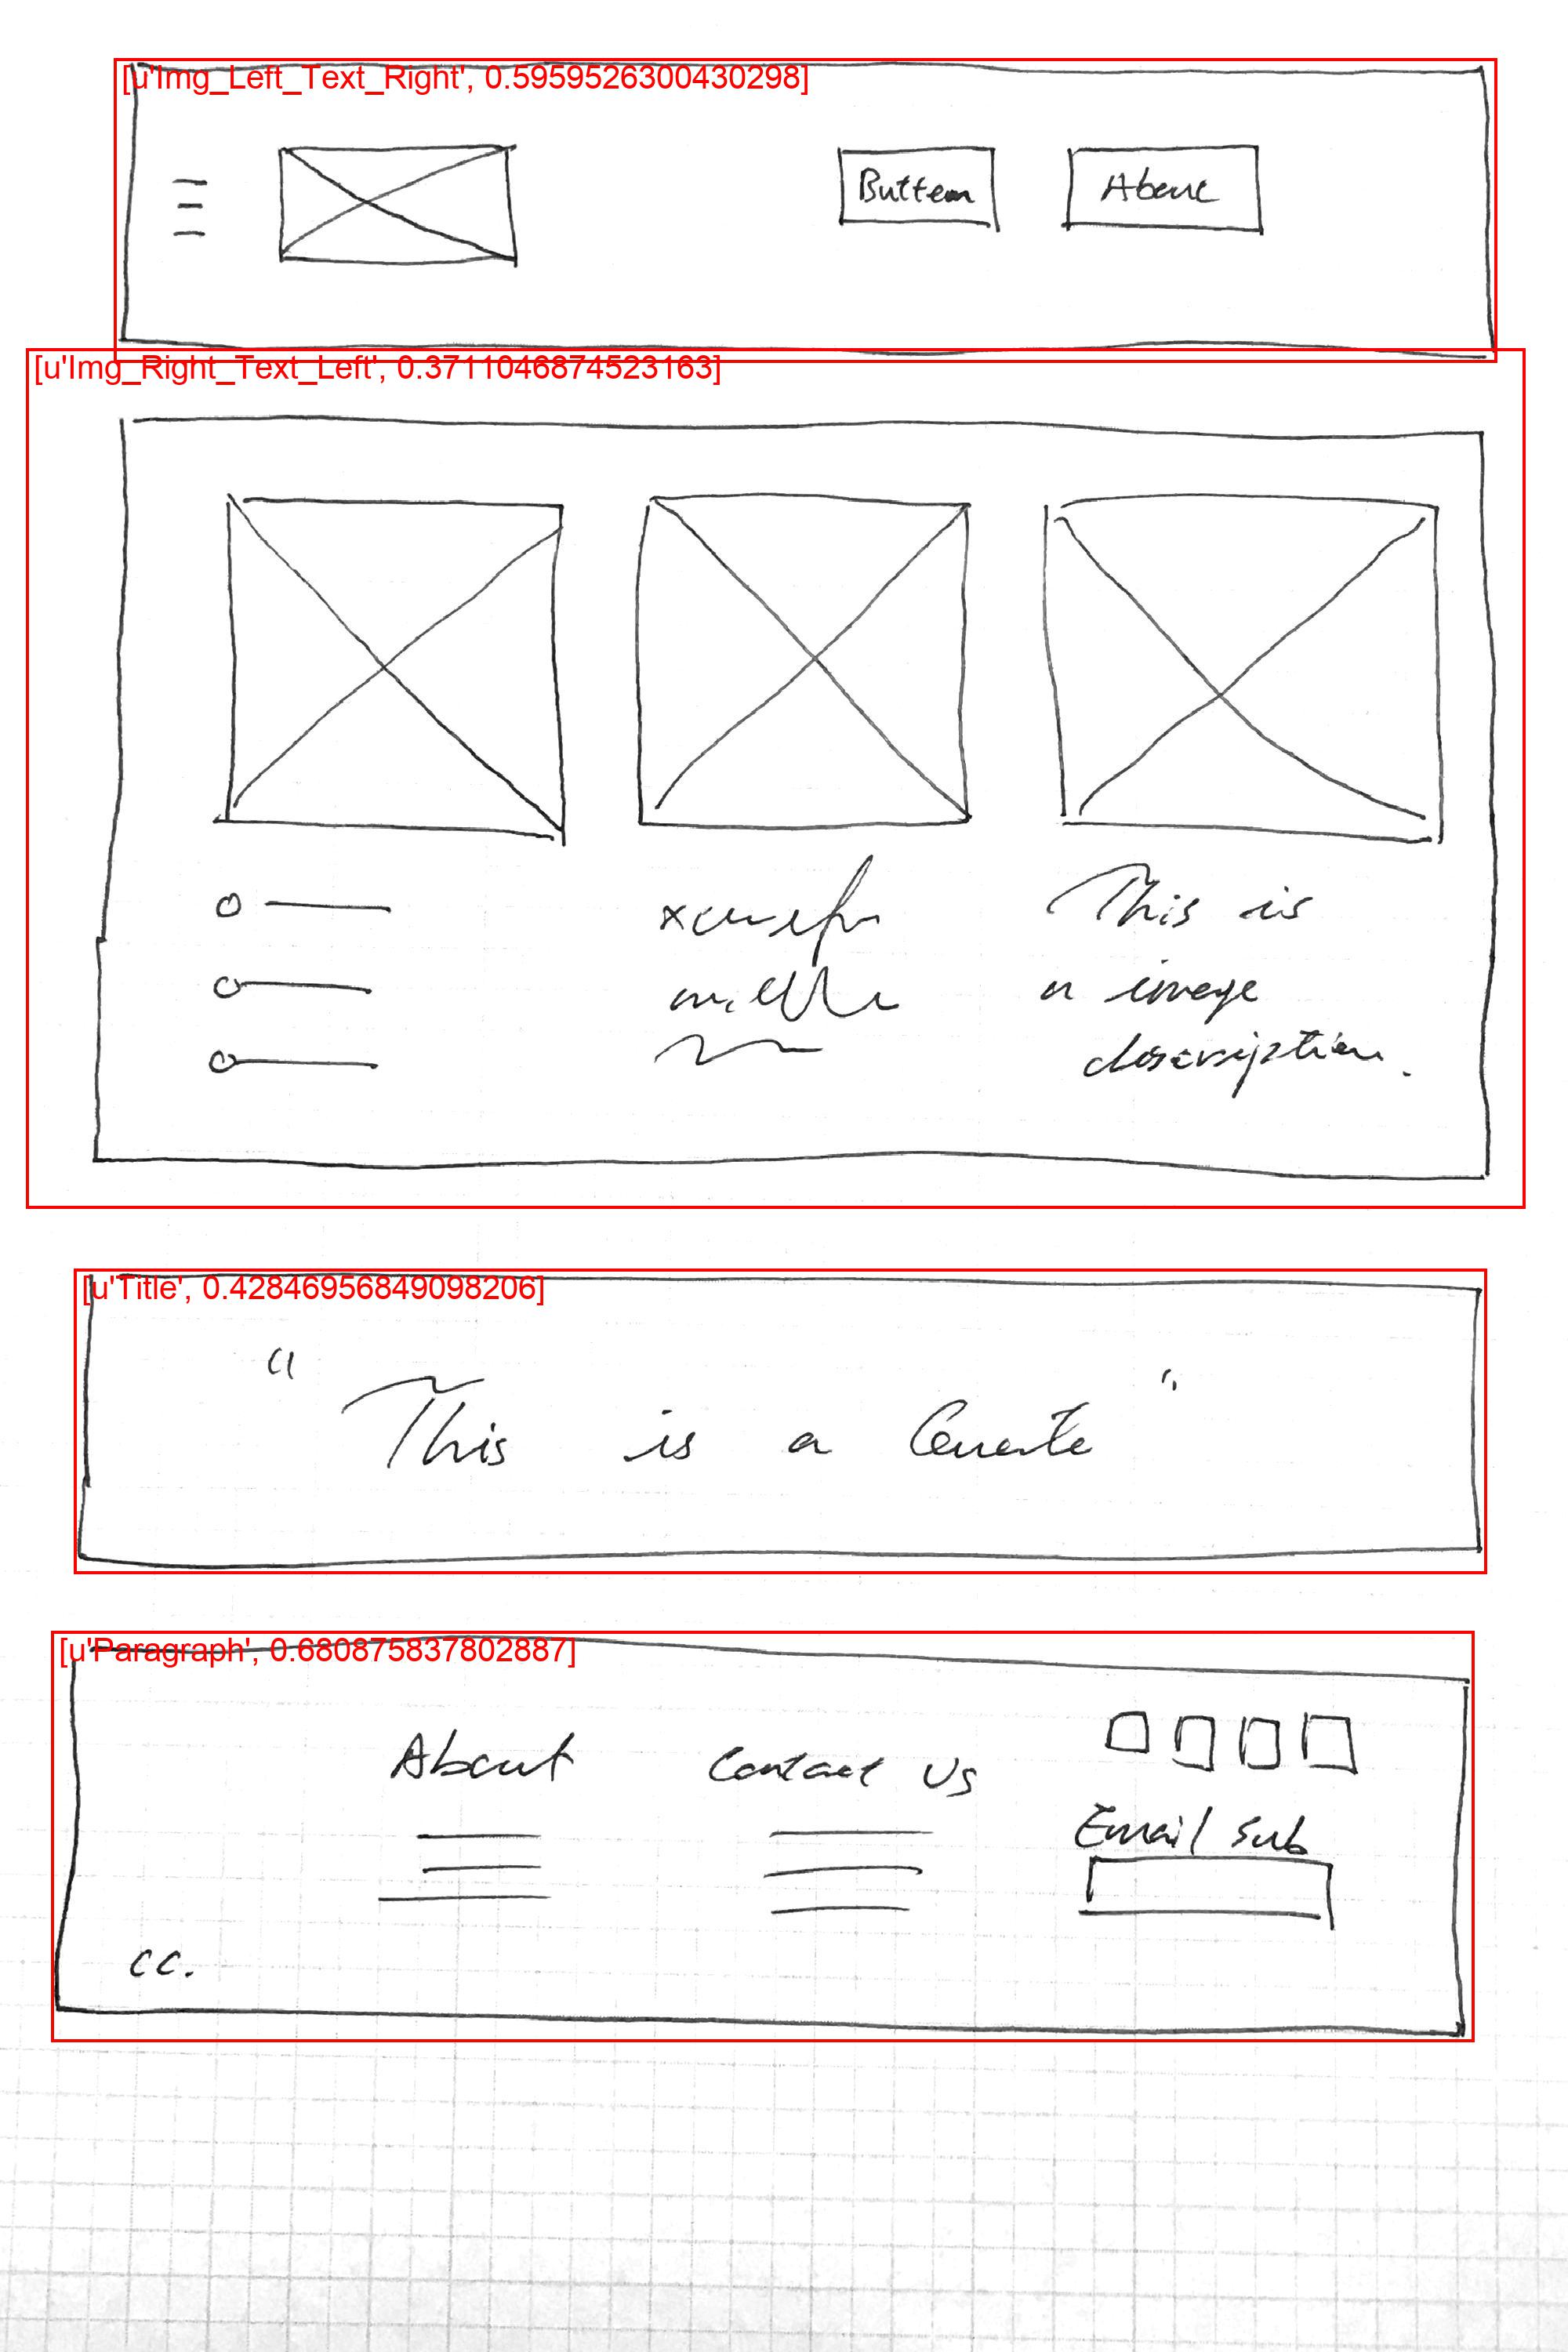 [u'Img_Left_Text_Right', 0.5959526300430298]
Button About
[u'Img_Right_Text_Left', 0.3711046874523163]
This is
a image
description.
[u'Title', 0.42846956849098206]
" This is a Quote "
[u'Paragraph', 0.680875837802887]
About Contact Us
Email Sub
cc.